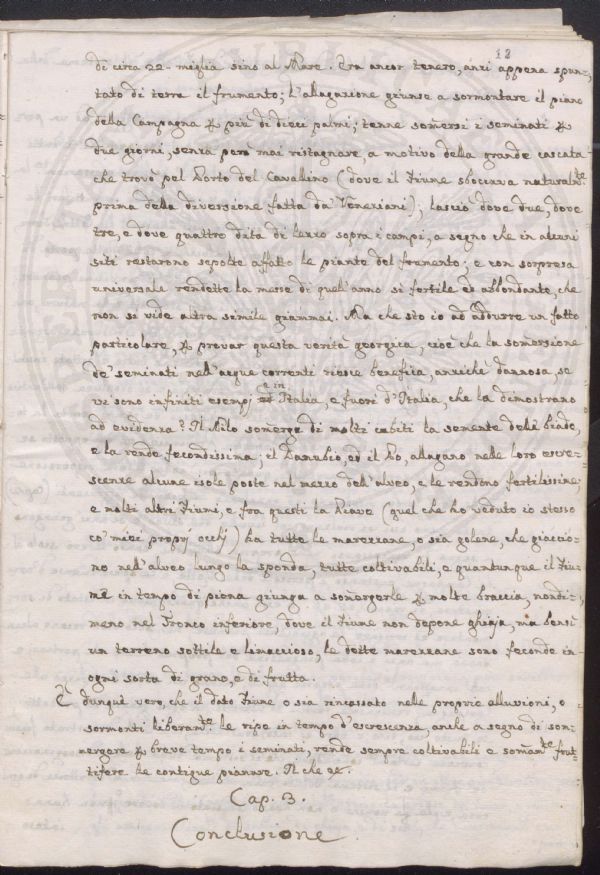 12
di circa 22 miglia sino al Mare. Era ancor tenero, anzi appena spun-
tato di terra il frumento; l'allagazione giunse a sormontare il piano
della Campagna p più di dieci palmi; tenne somersi i seminati p
due giorni, senza però mai ristagnare, a motivo della grande cascata
che trovò pel Porto del Cavallino (dove il Fiume sboccava naturalm.te
prima della diversione fatta da' Veneziani); lasciò dove due, dove
tre, e dove quattro dita di lezzo sopra i campi, a segno che in alcuni
siti restarono sepolte affatto le piante del frumento; e con sorpresa
universale rendette la messe di quell'anno sì fertile ed abbondante, che
non si vide altra simile giammai. Ma che sto io ad addurre un fatto
particolare, p provar questa verità georgica, cioè che la somersione
de' seminati nell'acque correnti riesce benefica, anzichè dannosa, se
vi sono infiniti esempj e in Italia, e fuori d'Italia, che la dimostrano
ad evidenza? Il Nilo somerge di molti cubiti la semente delle biade,
e la rende fecondissima; il Danubio, ed il Po, allagano nelle loro escre-
scenze alcune isole poste nel mezzo dell'alveo, e le rendono fertilissime;
e molti altri Fiumi, e fra questi la Piave (quel che ho veduto io stesso
co' miei proprj occhj) ha tutte le marezzane, o sia golene, che giaccio-
no nell'alveo lungo la sponda, tutte coltivabili, e quantunque il Fiu-
me in tempo di piena giunga a somergerle p molte braccia, nondi-
meno nel Tronco inferiore, dove il Fiume non depone ghiaja, ma bensì
un terreno sottile e limaccioso, le dette marezzane sono feconde in
ogni sorta di grano, e di frutta.
È dunque vero, che il dato Fiume o sia rincassato nelle proprie alluvioni, o
sormonti liberam.te le ripe in tempo d'escrescenza, anche a segno di som-
mergere p breve tempo i seminati, rende sempre coltivabili e somam.te frut-
tifere le contigue pianure. Il che &c.
Cap. 3.
Conclusione